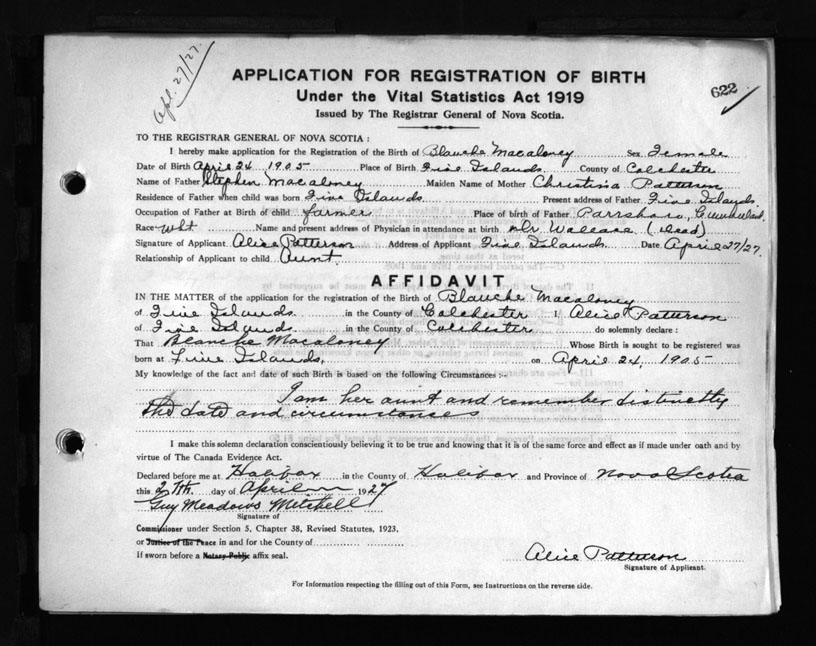 Apl. 27/27.
622
APPLICATION FOR REGISTRATION OF BIRTH
Under the Vital Statistics Act 1919
Issued by The Registrar General of Nova Scotia.
TO THE REGISTRAR GENERAL OF NOVA SCOTIA :
I hereby make application for the Registration of the Birth of Blanche Macaloney Sex Female
Date of Birth April 24 1905 Place of Birth Five Islands. County of Colchester
Name of Father Stephen Macaloney Maiden Name of Mother Christina Patterson
Residence of Father when child was born Five Islands Present address of Father Five Islands.
Occupation of Father at Birth of child farmer Place of birth of Father Parrsboro, Cumberland.
Race Wht. Name and present address of Physician in attendance at birth Dr Wallace (dead)
Signature of Applicant Alice Patterson Address of Applicant Five Islands Date April 27/27.
Relationship of Applicant to child Aunt.
AFFIDAVIT
IN THE MATTER of the application for the registration of the Birth of Blanche Macaloney
of Five Islands. in the County of Colchester I Alice Patterson
of Five Islands. in the County of Colchester do solemnly declare :
That Blanche Macaloney Whose Birth is sought to be registered was
born at Five Islands, on April 24, 1905
My knowledge of the fact and date of such Birth is based on the following Circumstances :-
I am her aunt and remember distinctly
the date and circumstances
I make this solemn declaration conscientiously believing it to be true and knowing that it is of the same force and effect as if made under oath and by
virtue of The Canada Evidence Act.
Declared before me at Halifax in the County of Halifax and Province of Nova Scotia
this 27th day of April 1927
Guy Meadows Mitchell
Signature of
Commissioner under Section 5, Chapter 38, Revised Statutes, 1923.
or Justice of the Peace in and for the County of
If sworn before a Notary Public affix seal.
Alice Patterson
Signature of Applicant.
For Information respecting the filling out of this Form, see Instructions on the reverse side.